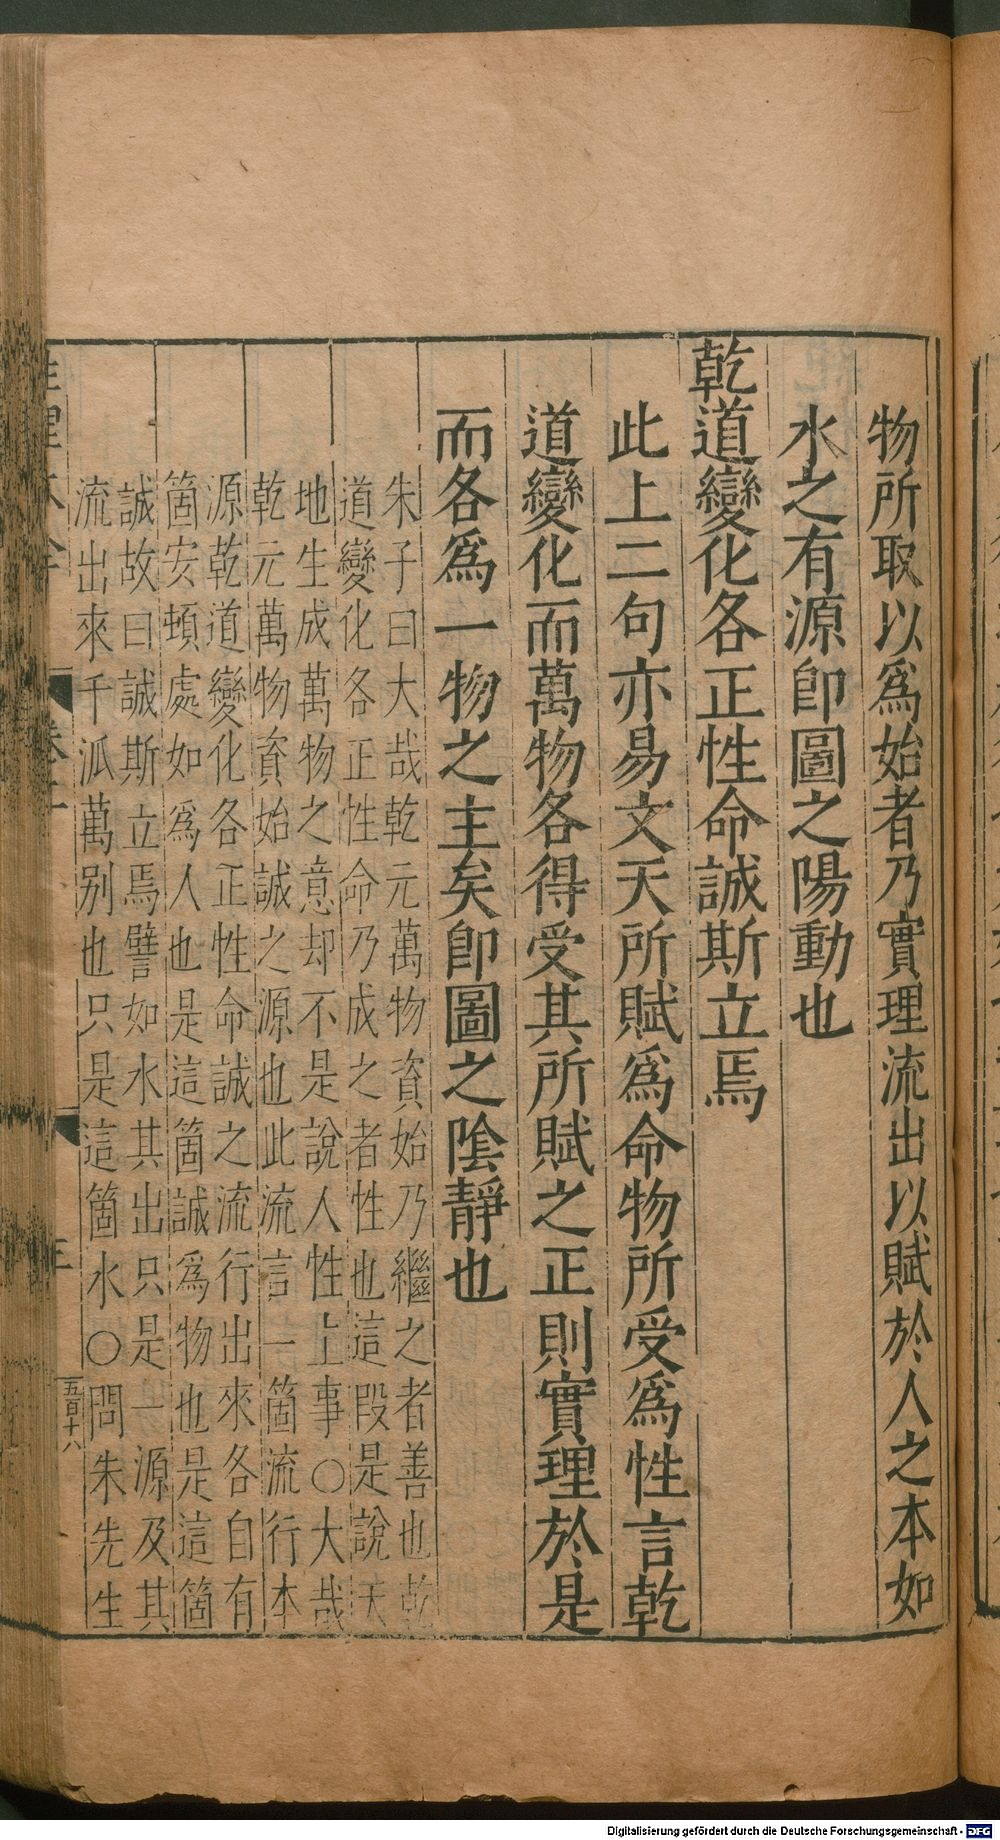 物所取以爲始者乃實理流出以賦於人之本如
水之有源卽圖之陽動也
乾道變化各正性命誠斯立焉
此上二句亦易文天所賦爲命物所受爲性言乾
道變化而萬物各得受其所賦之正則實理於是
而各爲一物之主矣卽圖之陰靜也
朱子曰大哉乾元萬物資始乃繼之者善也乾
道變化各正性命乃成之者性也這段是說天
地生成萬物之意却不是說人性上事〇大哉
乾元萬物資始誠之源也此流言一箇流行本
源乾道變化各正性命誠之流行出來各自有
箇安頓處如爲人也是這箇誠爲物也是這箇
誠故曰誠斯立焉譬如水其出只是一源及其
流出來千派萬别也只是這箇水〇問朱先生
五百十八
Digitalisierung gefördert durch die Deutsche Forschungsgemeinschaft - DFG